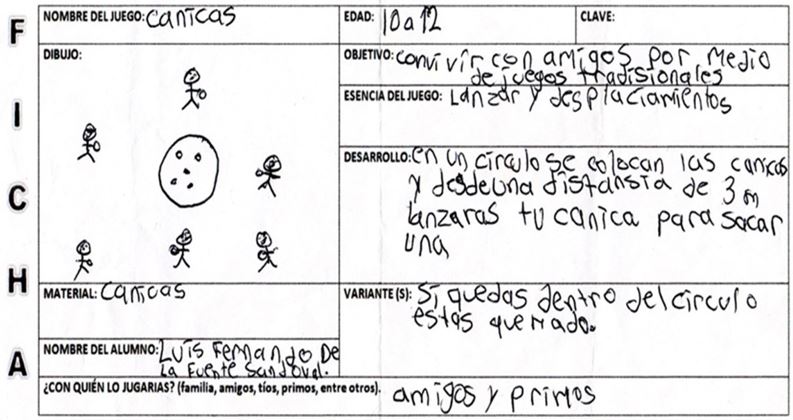 FICHA
NOMBRE DEL JUEGO: canicas
EDAD: 10 a 12
CLAVE:
DIBUJO:
OBJETIVO: convivir con amigos por medio
de juegos tradisionales
ESENCIA DEL JUEGO: Lanzar y desplaciamientos
DESARROLLO: en un circulo se colocan las canicas
y desde una distansia de 3 m
lanzaras tu canica para sacar
una,
MATERIAL: canicas
VARIANTE (S): Si quedas dentro del circulo
estas quemado.
NOMBRE DEL ALUMNO: Luis Fernando De
La Fuente Sandoval.
¿CON QUIÉN LO JUGARIAS? (familia, amigos, tíos, primos, entre otros). amigos y primos